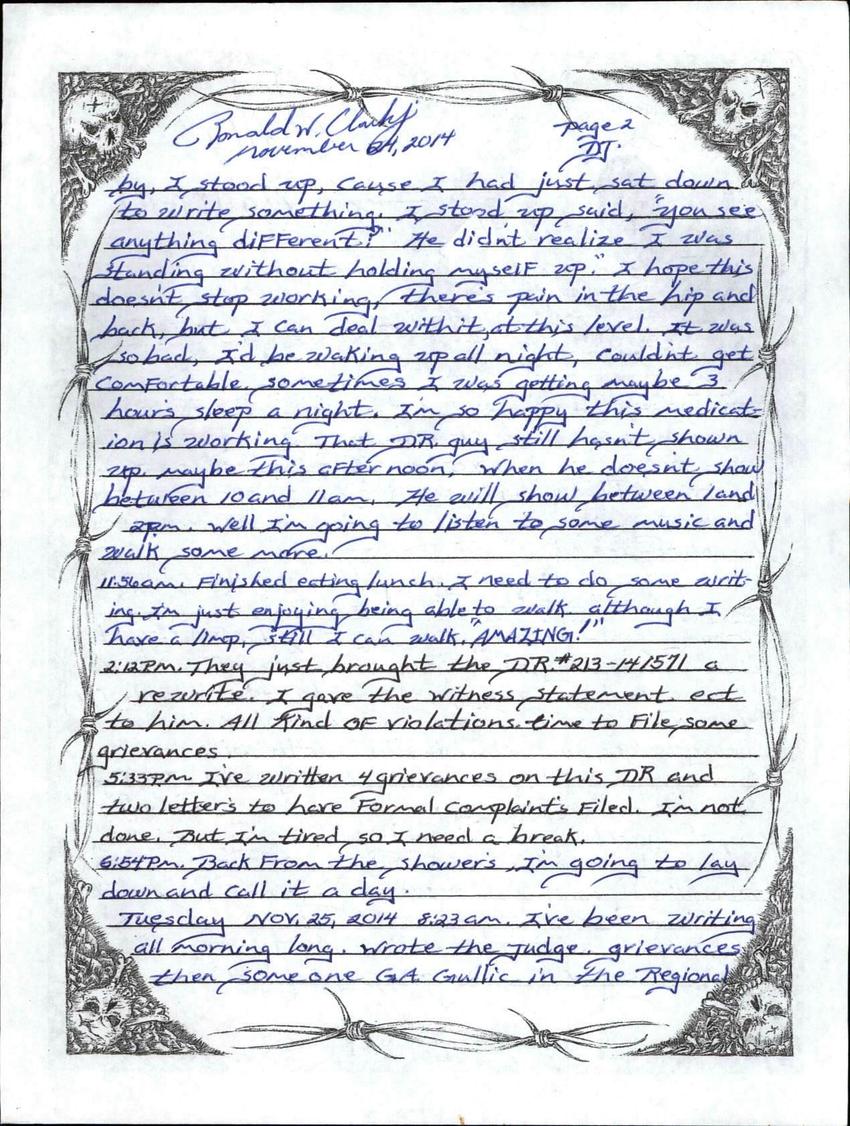 Ronald W. Clark Jr
page 2
november 24, 2014
DJ.
by, I stood up, cause I had just sat down
to write something. I stood up said, "you see
anything different?" He didn't realize I was
standing without holding myself up." I hope this
doesn't stop working, there's pain in the hip and
back, but I can deal with it, at this level. It was
so bad, I'd be waking up all night, couldn't get
comfortable. sometimes I was getting maybe 3
hours sleep a night. I'm so happy this medicat-
ion is working. That DR guy still hasn't shown
up. maybe this afternoon, when he doesn't show
between 10 and 11am. He will show between 1 and
2pm. well I'm going to listen to some music and
walk some more.
11:56am. Finished eating lunch. I need to do some writ-
ing. I'm just enjoying being able to walk. although I
have a limp, still I can walk. "AMAZING!"
2:12pm. They just brought the DR #213-141571 a
rewrite. I gave the witness statement ect
to him. All kind of violations. time to File some
grievances
5:33pm I've written 4 grievances on this DR and
two letter's to have Formal Complaint's Filed. I'm not
done. But I'm tired so I need a break.
6:54pm. Back From the shower's. I'm going to lay
down and call it a day.
Tuesday Nov. 25, 2014 8:23 am. I've been writing
all morning long. Wrote the Judge. grievances
then someone GA Gullic in the Regional